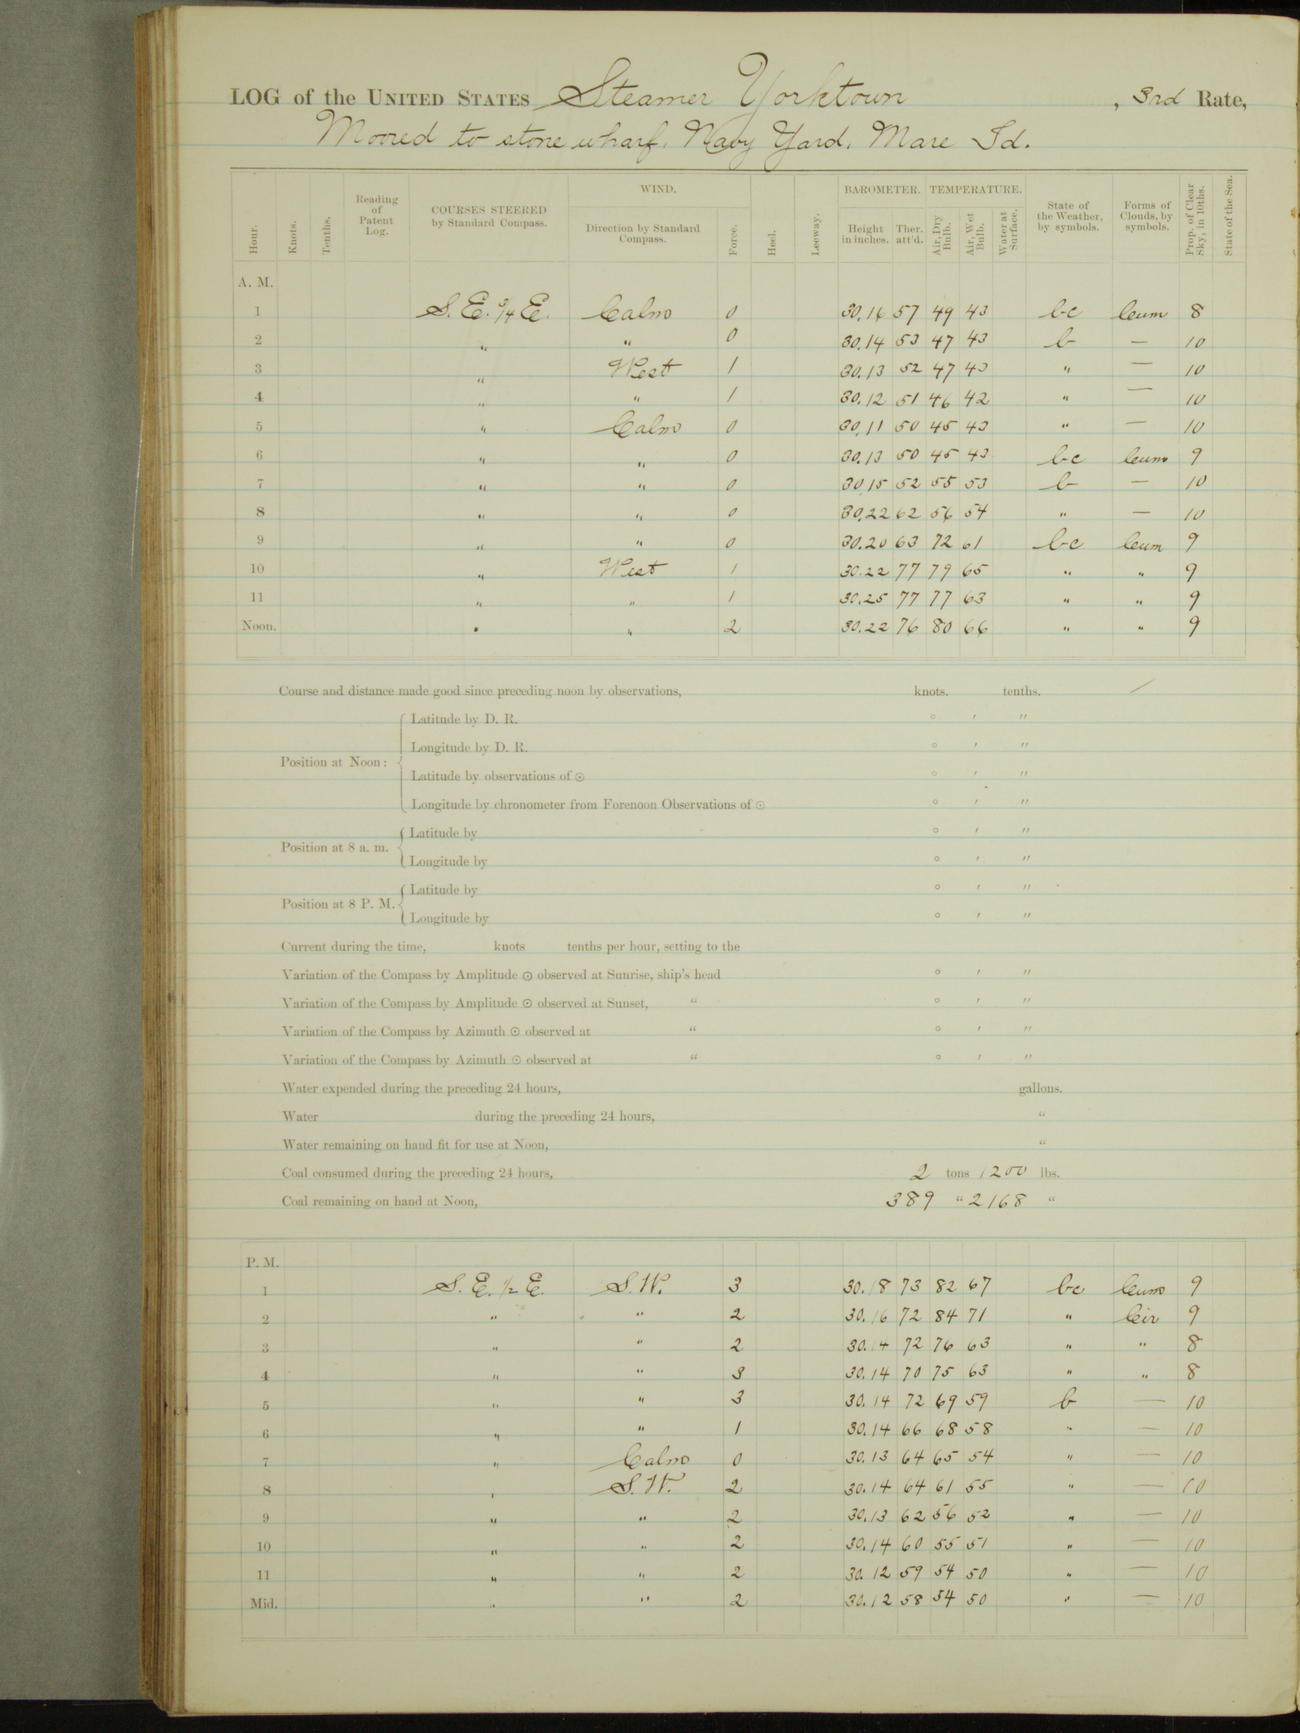 LOG of the UNITED STATES Steamer Yorktown, 3rd Rate,
Moored to stone wharf, Navy Yard, Mare Id.
Hour. Knots. Tenths. Reading of Patent Log. COURSES STEERED by Standard Compass. WIND. Direction by Standard Compass. Force. Heel. Leeway. BAROMETER. Height in inches. Ther. att'd. TEMPERATURE. Air, Dry Bulb. Air, Wet Bulb. Water at Surface. State of the Weather, by symbols. Forms of Clouds, by symbols. Prop. of Clear Sky, in 10ths. State of the Sea.
A. M.
1 S. E. 3/4 E. Calm 0 30.16 57 49 43 bc Cum 8
2 " " 0 30.14 53 47 43 b — 10
3 " West 1 30.13 52 47 43 " — 10
4 " " 1 30.12 51 46 42 " — 10
5 " Calm 0 30.11 50 45 43 " — 10
6 " " 0 30.13 50 45 43 bc Cum 9
7 " " 0 30.15 52 55 53 b — 10
8 " " 0 30.22 62 56 54 " — 10
9 " " 0 30.20 63 72 61 bc Cum 9
10 " West 1 30.22 77 79 65 " " 9
11 " " 1 30.25 77 77 63 " " 9
Noon. " " 2 30.22 76 80 66 " " 9
Course and distance made good since preceding noon by observations, knots. tenths.
Position at Noon: Latitude by D. R. ° ' "
Longitude by D. R. ° ' "
Latitude by observations of ⊙ ° ' "
Longitude by chronometer from Forenoon Observations of ⊙ ° ' "
Position at 8 a. m. Latitude by ° ' "
Longitude by ° ' "
Position at 8 P. M. Latitude by ° ' "
Longitude by ° ' "
Current during the time, knots tenths per hour, setting to the
Variation of the Compass by Amplitude ⊙ observed at Sunrise, ship's head ° ' "
Variation of the Compass by Amplitude ⊙ observed at Sunset, " ° ' "
Variation of the Compass by Azimuth ⊙ observed at " ° ' "
Variation of the Compass by Azimuth ⊙ observed at " ° ' "
Water expended during the preceding 24 hours, gallons.
Water during the preceding 24 hours, "
Water remaining on hand fit for use at Noon, "
Coal consumed during the preceding 24 hours, 2 tons 1200 lbs.
Coal remaining on hand at Noon, 389 " 2168 "
P. M.
1 S. E. 1/2 E. S.W. 3 30.18 73 82 67 bc Cum 9
2 " " 2 30.16 72 84 71 " Cir 9
3 " " 2 30.14 72 76 63 " " 8
4 " " 3 30.14 70 75 63 " " 8
5 " " 3 30.14 72 69 59 b — 10
6 " " 1 30.14 66 68 58 " — 10
7 " Calm 0 30.13 64 65 54 " — 10
8 " S.W. 2 30.14 64 61 55 " — 10
9 " " 2 30.13 62 56 52 " — 10
10 " " 2 30.14 60 55 51 " — 10
11 " " 2 30.12 59 54 50 " — 10
Mid. " " 2 30.12 58 54 50 " — 10